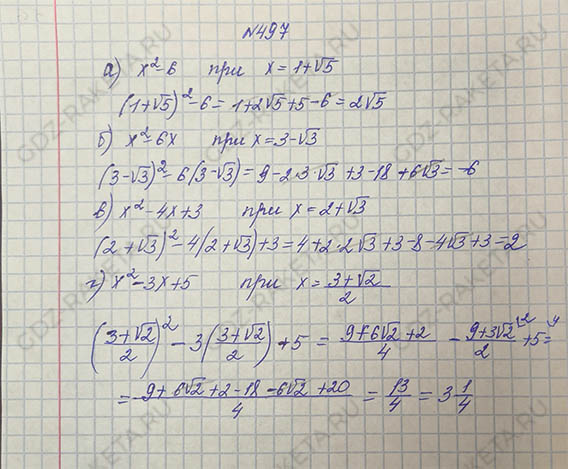 №497
а) x²-6 при x=1+√5
(1+√5)²-6=1+2√5+5-6=2√5
б) x²-6x при x=3-√3
(3-√3)²-6(3-√3)=9-2·3·√3+3-18+6√3=-6
в) x²-4x+3 при x=2+√3
(2+√3)²-4(2+√3)+3=4+2·2√3+3-8-4√3+3=2
г) x²-3x+5 при x=(3+√2)/2
((3+√2)/2)²-3((3+√2)/2)+5=(9+6√2+2)/4-(9+3√2)/2^2+5^4=
=(9+6√2+2-18-6√2+20)/4=13/4=3 1/4
GDZ-RAKETA.RU